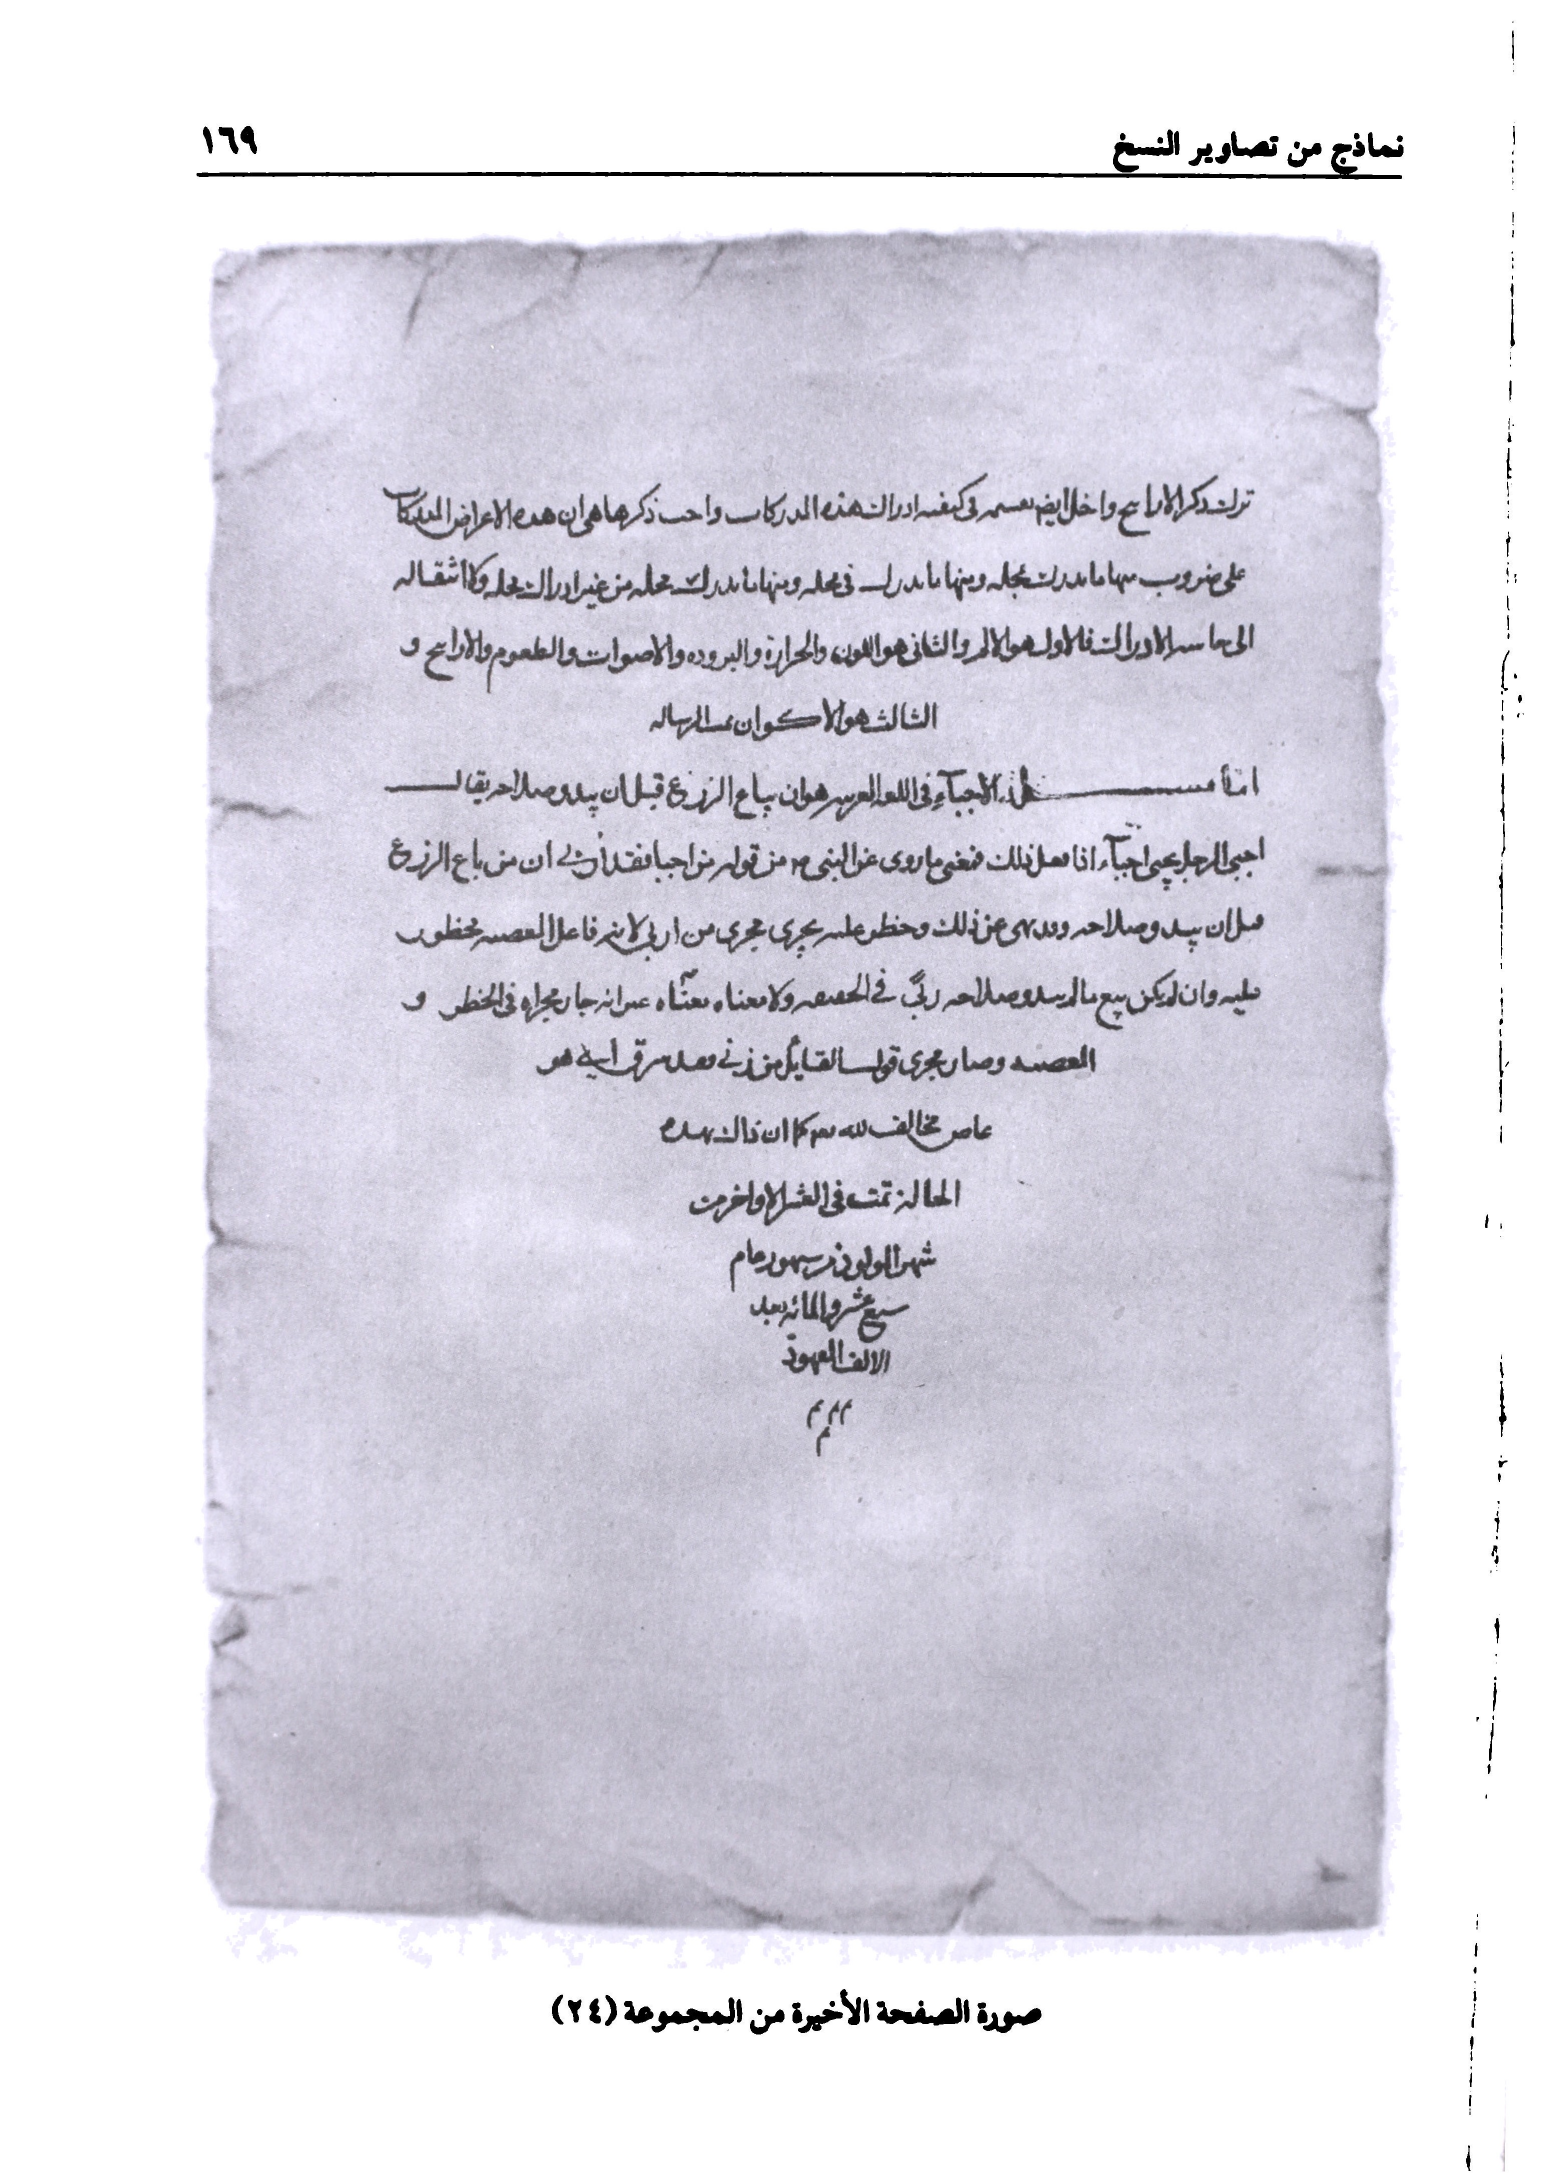 نماذج من تصاوير النسخ ١٦٩
ترك ذكر الاراييح واخل ايضا بقسمه في كيفيه ادراك هذه المدركات وأحب ذكرها هي ان هذه الاعراض المدركات
على ضروب منها ما يدرك بمحله ومنها ما يدرك فى محله ومنها ما يدرك محله من غير ادراك محله ولا انتقاله
الى حاسه الادراك فالاول هو الالم والثانى هو اللون والحرارة والبروده والاصوات والطعوم والاراييح و
الثالث هو الاكوان تمت الرساله
الاجبآء فى اللغه العربيه هو ان يباع الزرع قبل ان يبدو صلاحه يقال
اجبى الرجل يجبى اجبآء اذا فعل ذلك فمعنى ما روى عن النبى ص من قوله من اجبا فقد أربى ان من باع الزرع
قبل ان يبدو صلاحه وقد نهى عن ذلك وحظر عليه يجري مجرى من اربى لانه فاعل المعصيه محظور
عليه وان لم يكن بيع ما لم يبد صلاحه ربًى في الحقيقه ولا معناه معنآه غير انه جار مجراه فى الحظر و
المعصيه وصار مجرى قول القايل من زنى فقد سرق أى هو
عاص مخالف لله تعه كما ان ذاك بهذه
الحاله تمت فى العشر الاواخر من
شهر المولود من شهور عام
سبع عشر والمائه بعد
الالف
م م م
م
صورة الصفحة الأخيرة من المجموعة (٢٤)